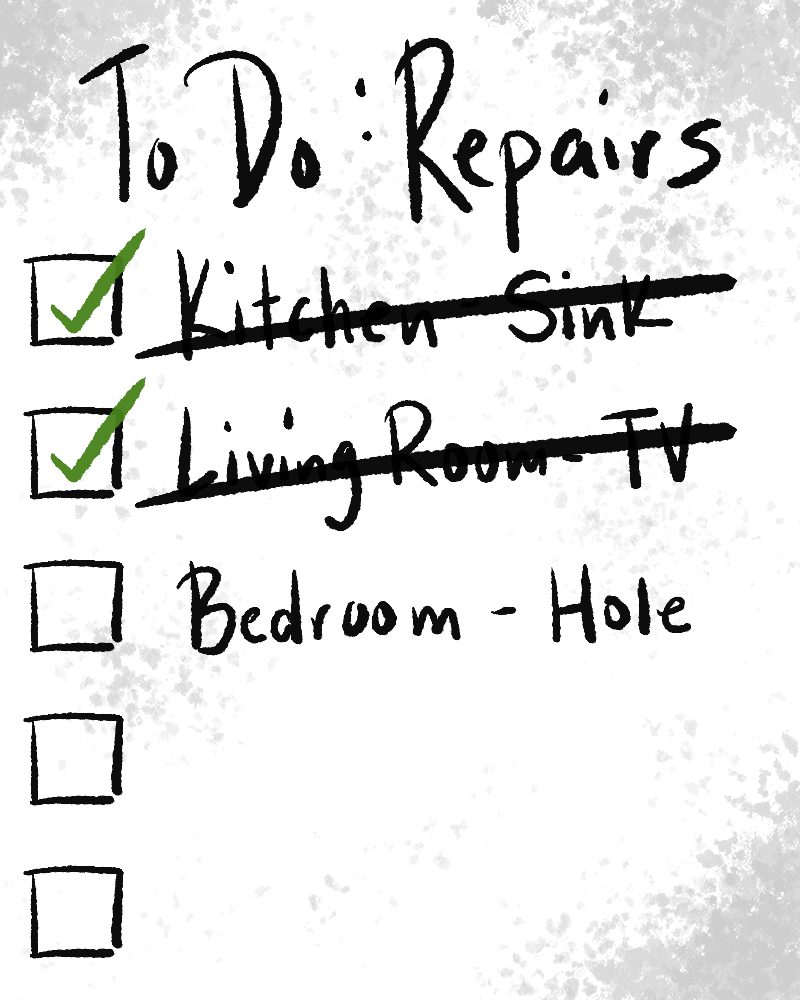 To Do: Repairs
Kitchen - Sink
Living Room - TV
Bedroom - Hole